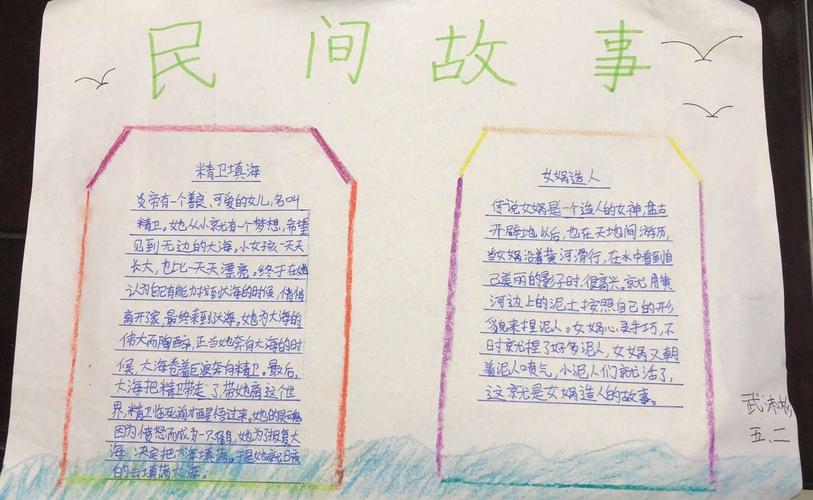 民间故事
精卫填海
炎帝有一个善良、可爱的女儿,名叫
精卫。她从小就有一个梦想,希望
见到无边的大海,小女孩一天天
长大,也比一天天漂亮。终于在她
认为自己有能力找到大海的时候,悄悄
离开了家,最终来到大海。她为大海的
伟大而陶醉,正当她奔向大海的时
候,大海卷着巨浪奔向精卫。最后,
大海把精卫带走了,带她离这个世
界,精卫临死前才醒悟过来。她的灵魂
因为愤怒而成为一只鸟,她为了报复大
海,决定把大海填满。于是她就日夜
的去填满大海。
女娲造人
传说女娲是一个造人的女神,盘古
开辟地以后,也在天地间游历,
当女娲沿着黄河滑行,在水中看到自
己美丽的影子时,很高兴。就用黄
河边上的泥土按照自己的形
貌来捏泥人。女娲心灵手巧,不
时就捏了好多泥人,女娲又朝
着泥人喷气,小泥人们就活了,
这就是女娲造人的故事。
武沐
五、二